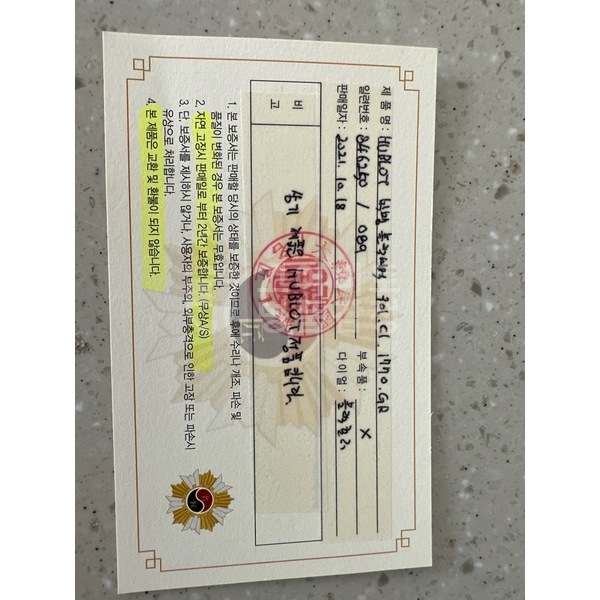 제 품 명 : HUBLOT 빅뱅
일련번호 : 부속품 : X
판매일자 : 2021. 10. 18 다 이 얼 :
비 고
상기 제품은 HUBLOT 정품입니다.
1. 본 보증서는 판매할 당시의 상태를 보증한 것이므로 후에 수리나 개조, 파손 및
품질이 변화된 경우 본 보증서는 무효입니다.
2. 자연 고장시 판매일로 부터 2년간 보증합니다. (무상A/S)
3. 단, 보증서를 제시하지 않거나, 사용자의 부주의, 외부충격으로 인한 고장 또는 파손시
유상으로 처리합니다.
4. 본 제품은 교환 및 환불이 되지 않습니다.